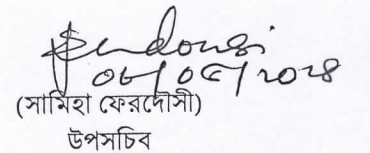 ০৮/০৫/২০২৪
(সামিহা ফেরদৌসী)
উপসচিব